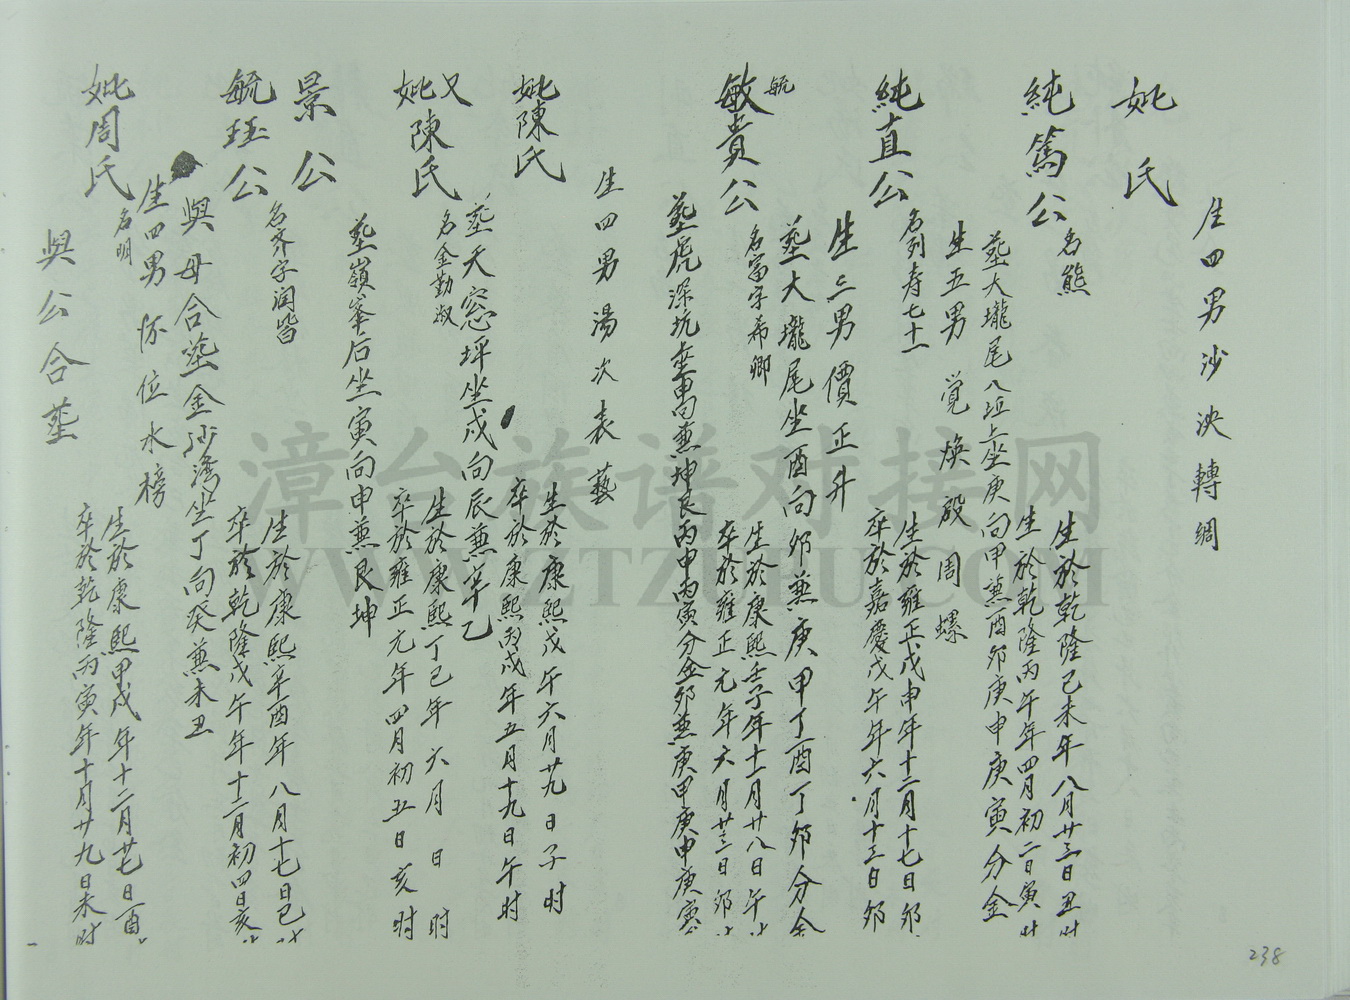 妣氏
生四男沙泱轉綢
純篤公
名熊
生於乾隆己未年八月廿三日丑时
生於乾隆丙午年四月初二日寅时
塟大壠尾八坵上坐庚向甲兼酉卯庚申庚寅分金
生五男 覚煥殷周螺
純直公
名列寿七十一
生於雍正戊申年十二月十七日卯
卒於嘉慶戊午年六月十三日卯
生三男價正升
塟大壠尾坐酉向卯兼庚甲丁酉丁卯分金
毓
敏貴公
名富字希卿
生於康熙壬子年十一月廿八日午
卒於雍正元年六月廿三日卯
塟虎深坑坐申向兼坤艮丙申丙寅分金卯兼庚甲庚申庚寅
生四男湯次表藝
妣陳氏
生於康熙戊午六月廿九日子时
卒於康熙丙戌年五月十九日午时
塟天窓坪坐戌向辰兼辛乙
又
妣陳氏
名金勤淑
生於康熙丁己年六月 日 时
卒於雍正元年四月初五日亥时
塟嶺峯后坐寅向申兼艮坤
景公
毓珏公
名齐字潤皆
生於康熙辛酉年八月十七日巳
卒於乾隆戊午年十二月初四日亥
與母合塟金沙湾坐丁向癸兼未丑
生四男 位水榜
妣周氏
名明
生於康熙甲戌年十二月廿七日酉
卒於乾隆丙寅年十月廿九日未时
與公合塟
238
漳台族谱对接网
WWW.ZTZUPU.COM